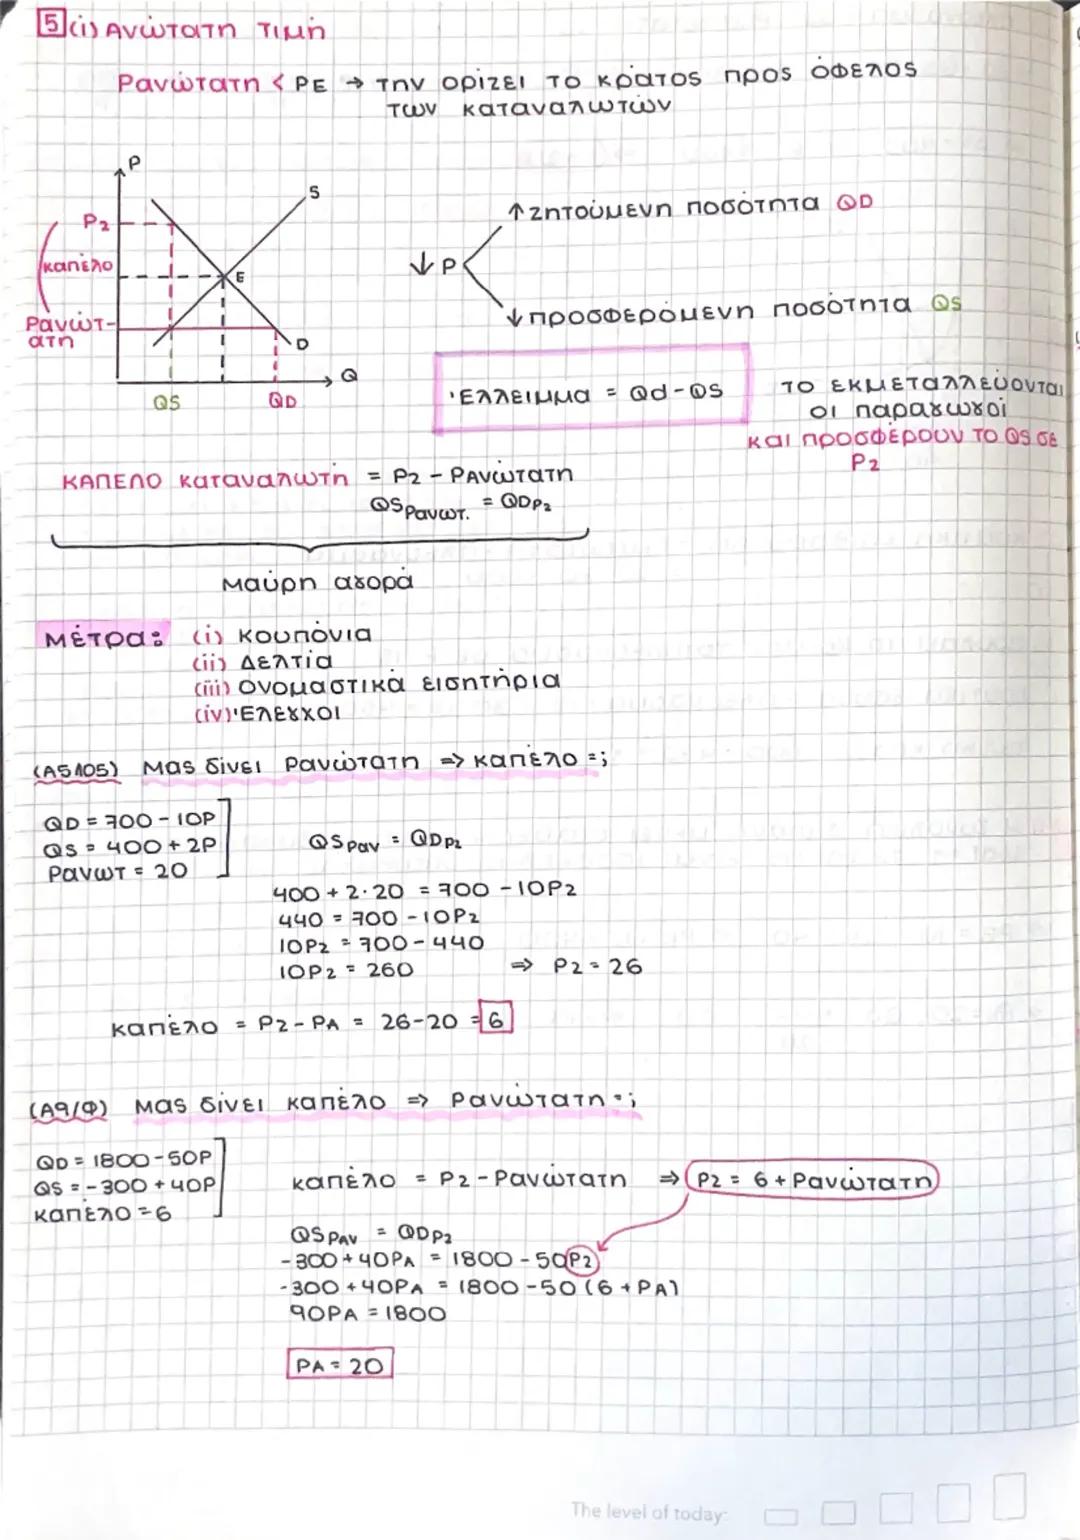 5 (i) Ανώτατη Τιμή
Pανώτατη < PE → την ορίζει το κράτος προς όφελος
των καταναλωτών
P
S
P2
καπέλο
E
Pανώτ-
ατη
D
Q
QS
QD
↓ P
↑ ζητούμενη ποσότητα QD
↓ προσφερόμενη ποσότητα QS
Έλλειμμα = Qd - QS
το εκμεταλλεύονται
οι παραγωγοί
και προσφέρουν το QS σε
P2
ΚΑΠΕΛΟ καταναλωτή = P2 - Pανώτατη
QS Pανωτ. = QDP2
μαύρη αγορά
μέτρα: (i) κουπόνια
(ii) Δελτία
(iii) ονομαστικά εισητήρια
(iv) Έλεγχοι
(Α5Λ05) Μας δίνει Pανώτατη ⇒ καπέλο = ;
QD = 700 - 10P
QS = 400 + 2P
Pανωτ = 20
QS Pαν = QDP2
400 + 2·20 = 700 - 10P2
440 = 700 - 10P2
10P2 = 700 - 440
10P2 = 260 ⇒ P2 = 26
καπέλο = P2 - PA = 26-20 = 6
(Α9/Φ) Μας δίνει καπέλο ⇒ Pανώτατη = ;
QD = 1800 - 50P
QS = -300 + 40P
καπέλο = 6
καπέλο = P2 - Pανώτατη ⇒ P2 = 6 + Pανώτατη
QS PAV = QDP2
-300 + 40PA = 1800 - 50P2
-300 + 40PA = 1800 - 50 (6 + PA)
90PA = 1800
PA = 20
The level of today: